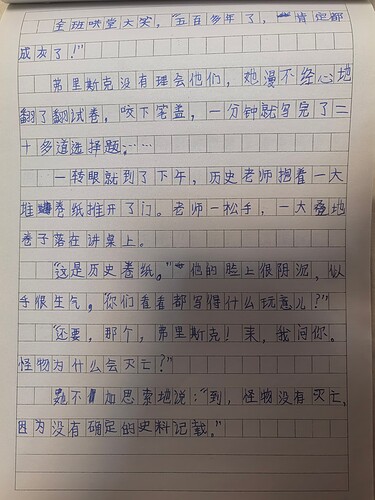 全班哄堂大笑，“五百多年了，肯定都
成灰了！”
弗里斯克没有理会他们，她漫不经心地
翻了翻试卷，咬下笔盖，一分钟就写完了二
十多道选择题……
一转眼就到了下午，历史老师抱着一大
堆卷纸推开了门。老师一松手，一大叠地
卷子落在讲桌上。
“这是历史卷纸。”他的脸上很阴沉，似
乎很生气。“你们看看都写得什么玩意儿？”
“还要，那个，弗里斯克！来，我问你。
怪物为什么会灭亡？”
不加思索地说：“到，怪物没有灭亡，
因为没有确定的史料记载。”